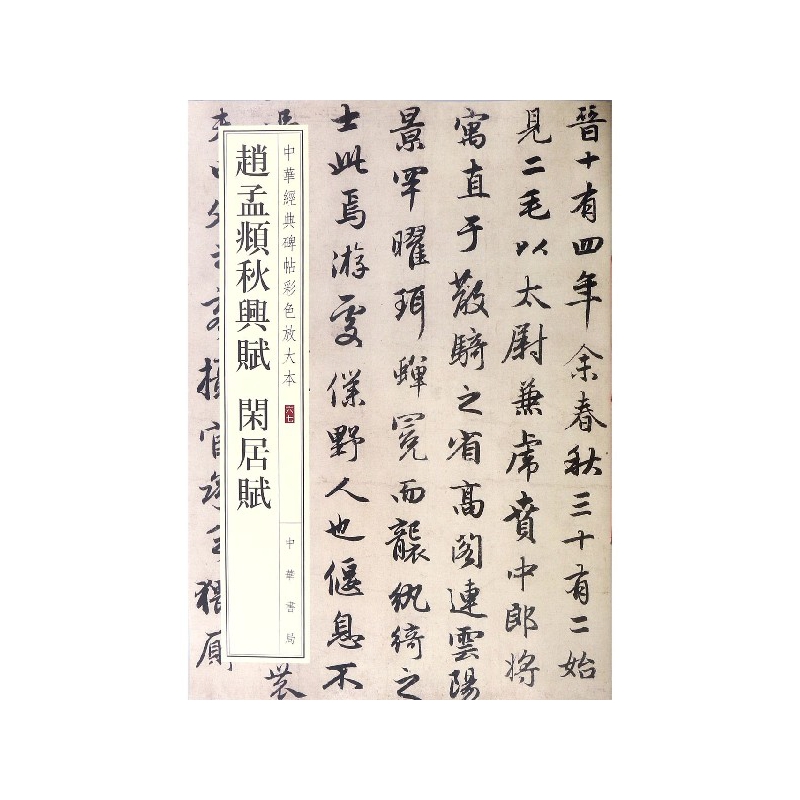 晉十有四年余春秋三十有二始
見二毛以太尉兼虎賁中郎將
寓直于散騎之省高閣連雲陽
景罕曜珥蟬冕而襲紈綺之
士此焉游處僕野人也偃息不
中華經典碑帖彩色放大本
六七
中華書局
趙孟頫秋興賦 閑居賦
攝官
猥廁